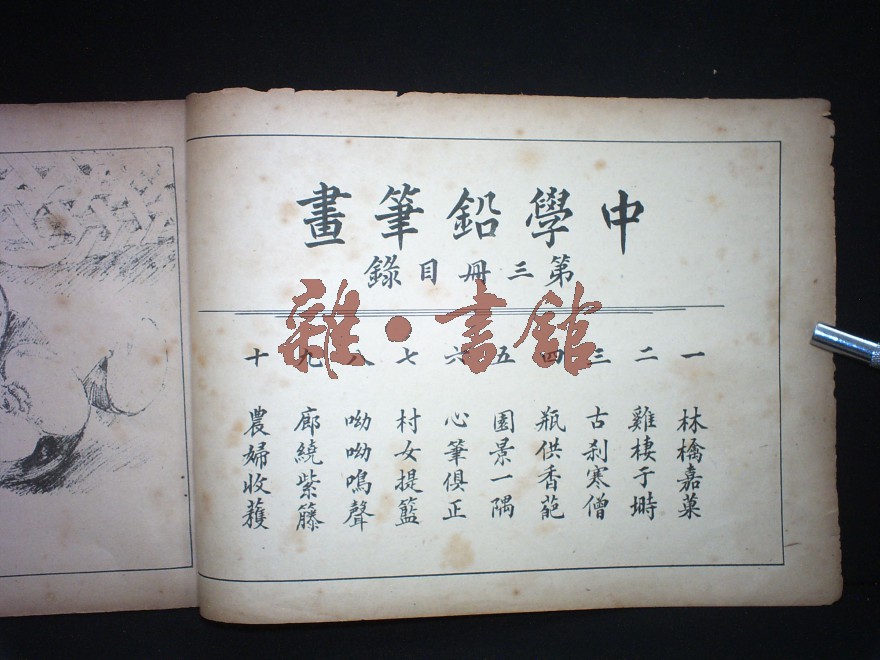 中學鉛筆畫
第三冊目錄
一 林檎嘉菓
二 雞棲于塒
三 古刹寒僧
四 瓶供香葩
五 園景一隅
六 心筆俱正
七 村女提籃
八 呦呦鳴聲
九 廊繞紫籐
十 農婦收穫
雜·書館